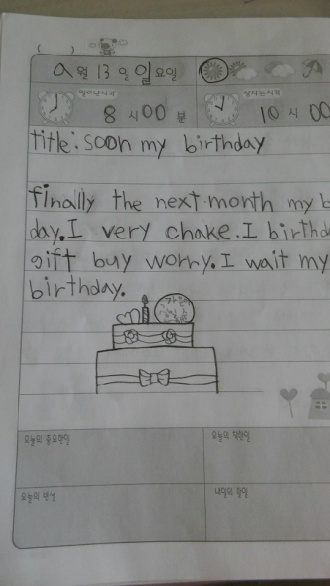 ( )
a월 13일 일요일
일어난시각 잠자는시각
8시00분 10시00
title: soon my birthday
finally the next month my b
day. I very chake. I birthd
gift buy worry. I wait my
birthday.
오늘의 중요한일 오늘의 착한일
오늘의 반성 내일의 할일